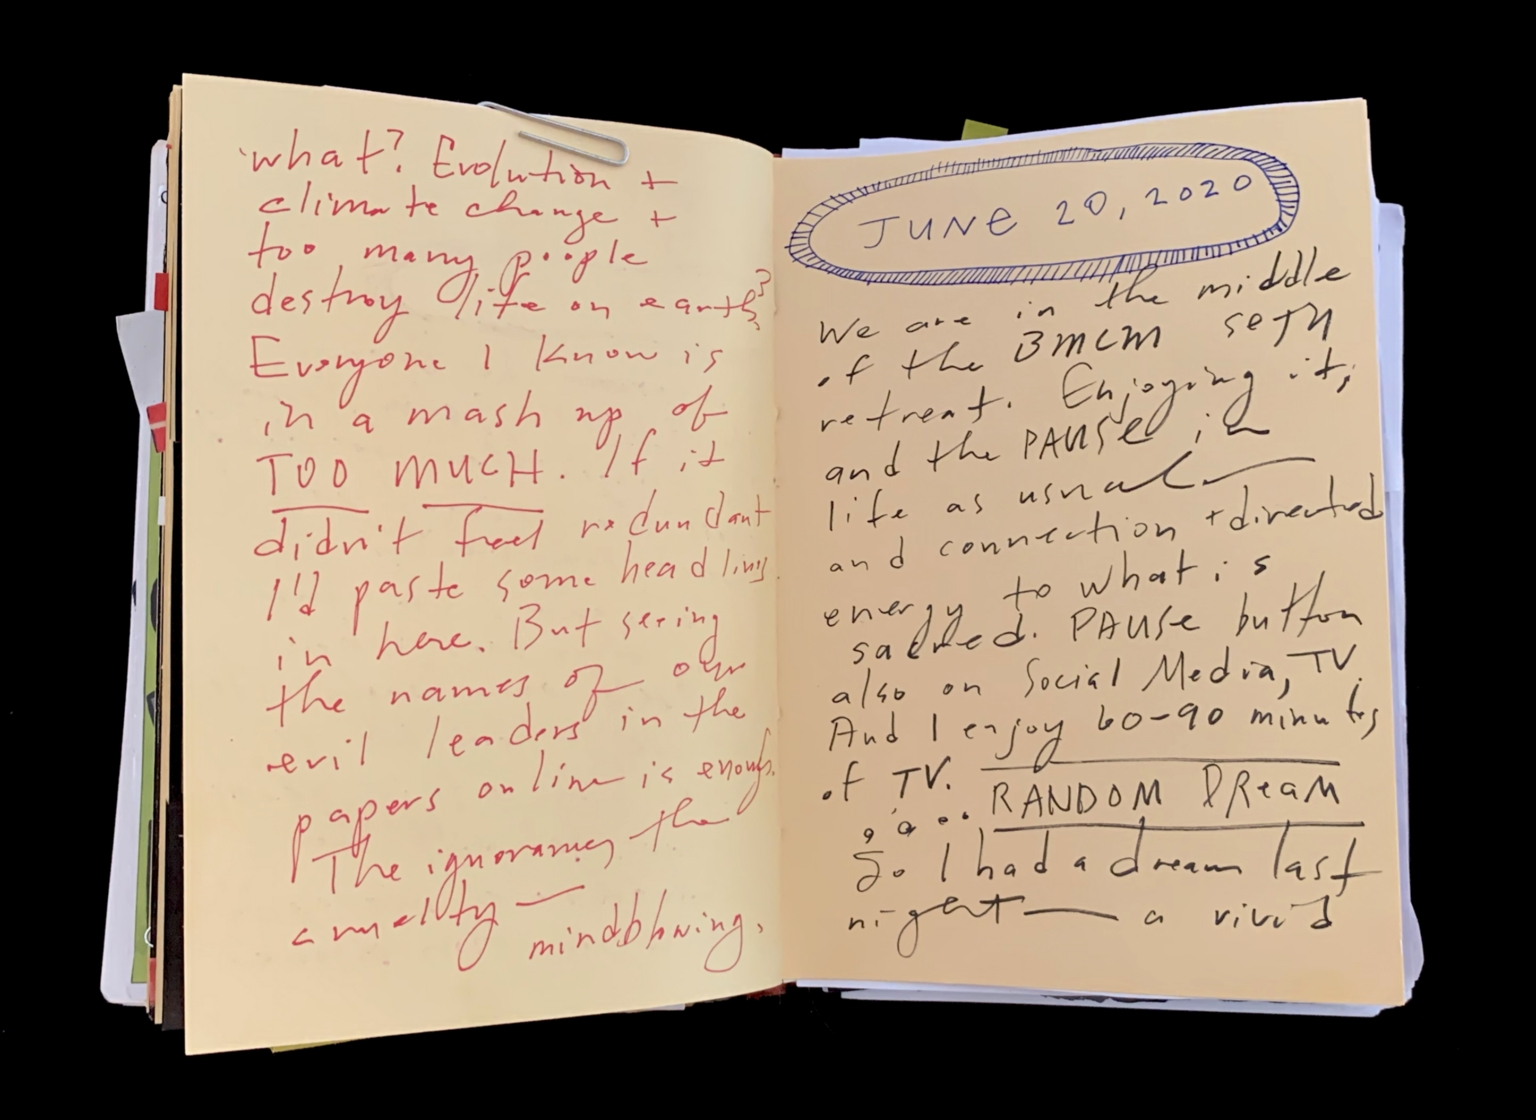 what? Evolution +
climate change +
too many people
destroy life on earth?
Everyone I know is
in a mash up of
TOO MUCH. If it
didn't feel redundant
I'd paste some headlines
in here. But seeing
the names of our
evil leaders in the
papers online is enough.
The ignorance, the
cruelty —
mindblowing.
JUNE 20, 2020
We are in the middle
of the BMCM
retreat. Enjoying it,
and the PAUSE in
life as usual —
and connection + directed
energy to what is
sacred. PAUSE button
also on Social Media, TV.
And I enjoy 60-90 minutes
of TV.
RANDOM DREAM
So I had a dream last
night — a vivid